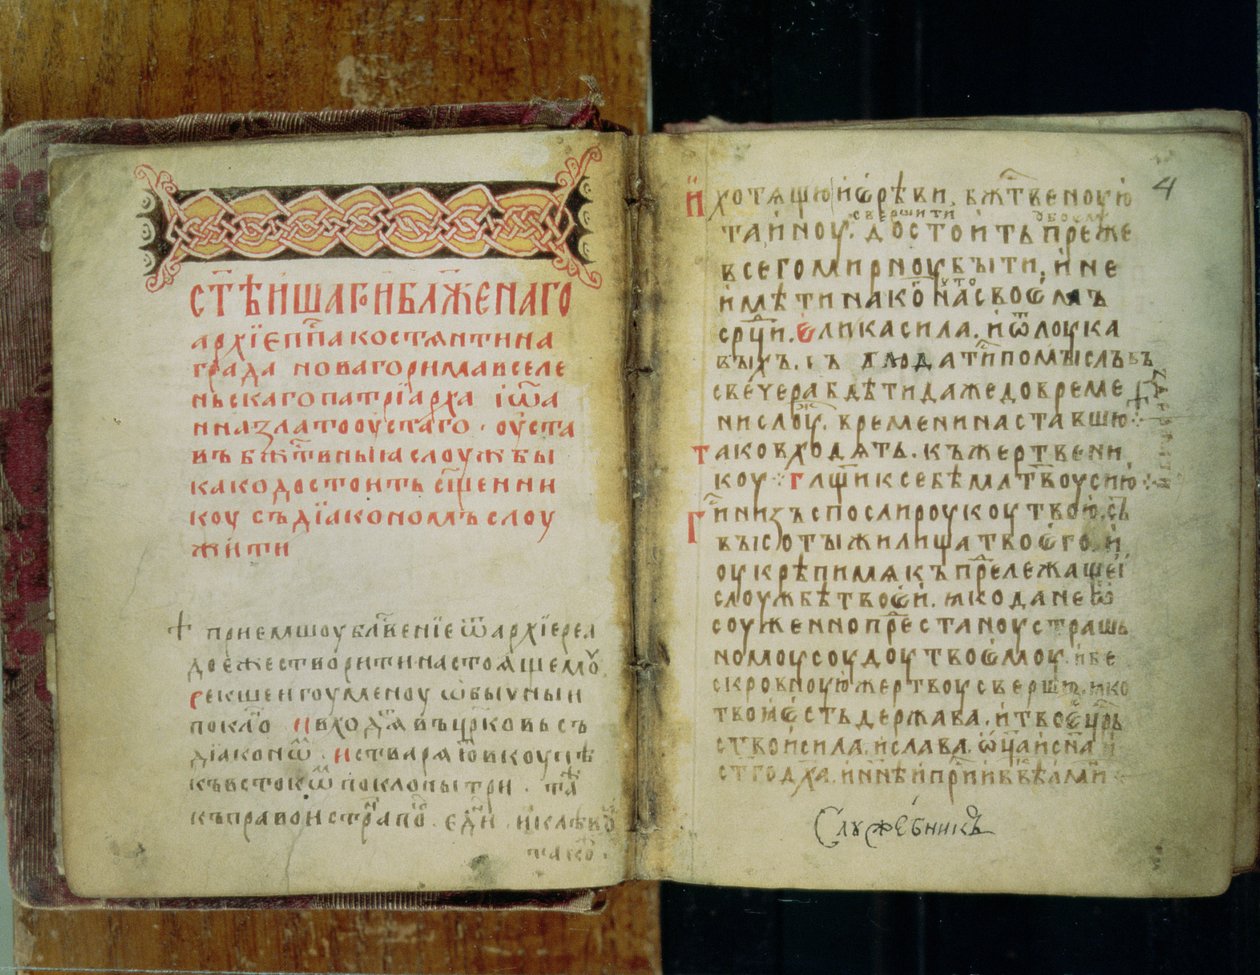 СТ҃ѢИШАГО И БЛА҃ЖЕНАГО
АРХЇЕПП҃А КОСТѦНТИНА
ГРАДА НОВАГО РИМА И ВСЕЛЕ
НЬСКАГО ПАТРЇАРХА ІѠ҃А
ННА ЗЛАТООУСТАГО · ОУСТА
ВЪ БЖ҃ТВНЫꙖ СЛОУЖБЫ
КАКО ДОСТОИТЬ СЩ҃ЕННИ
КОУ СЪ ДЇАКОНОМЪ СЛОУ
ЖИТИ
+ ПРИЕМШОУ БЛАВЕ҃НЇЕ Ѿ АРХЇЕРЕꙖ
ДОЕ ЖЕ СТВОРИТИ · НАСТОѦЩЕМОУ
РЕКШЕ ИГОУМЕНОУ ѠБЫЧНЫИ
ПОКЛО И ВХОДѦ В ЦР҃КОВЬ СЪ
ДЇАКОНѠ · И СТВАРѦЮ ВКОУПѢ
КЪ ВСТОКѠ ПОКЛОНЫ ТРИ ·
КЪ ПРАВОИ СТРА ПО · ЕДИ · И К ЛѢВО
ТАКО ·
4
И ХОТѦЩЮ ИѠРѢКИ БЖ҃ТВЕНОУЮ
СВЕРШИТИ
ТАИНОУ · ДОСТОИТЬ ПРЕЖЕ
ВСЕГО МИРНОУ БЫТИ, И НЕ
ИМѢТИ НА КО НА СВОЕМЪ
СРЦ҃И · ЕЛИКА СИЛА · И Ѿ ЛОУКА
ВЫХЪ · БЛЮДАТИ ПОМЫСЛЪ
С ВЕЧЕРА БДѢТИ ДАЖЕ ДО ВРЕМЕ
НИ СЛОУ · ВРЕМЕНИ НАСТАВШЮ
ТАКО ВХОДѦТЬ · КЪ ЖЕРТВЕНИ
КОУ · ГЛЩ҃И К СЕБѢ МЛТ҃ВОУ СИЮ
Г҃И НИЗЪСПОСЛИ РОУКОУ ТВОЮ · СЪ
ВЫСОТЫ ЖИЛИЩА ТВОЕГО · И
ОУКРѢПИ МѦ КЪ ПРЕ҃ЛЕЖАЩЕИ
СЛОУЖБѢ ТВОЕИ · ꙖКО ДА НЕѠ
СОУЖЕННО ПРЕ҃СТАНОУ СТРАШЬ
НОМОУ СОУДОУ ТВОЕМОУ · И БЕ
СКРОВНОУЮ ЖЕРТВОУ СВЕРШЮ · ꙖКО
ТВОꙖ ЕСТЬ ДЕРЖАВА · И ТВОЕ ЦР҃Ь
СТВО И СИЛА · И СЛАВА · ѠЦ҃А И СН҃А И
СТ҃ГО ДХ҃А · И НН҃Ѣ И ПР҃И И ВВѢ АМИ
СЛУЖЕБНИКЪ